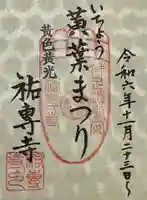 令和六年十一月二十三日〜
いちょう
黄葉まつり
黄色黄光
祐専寺